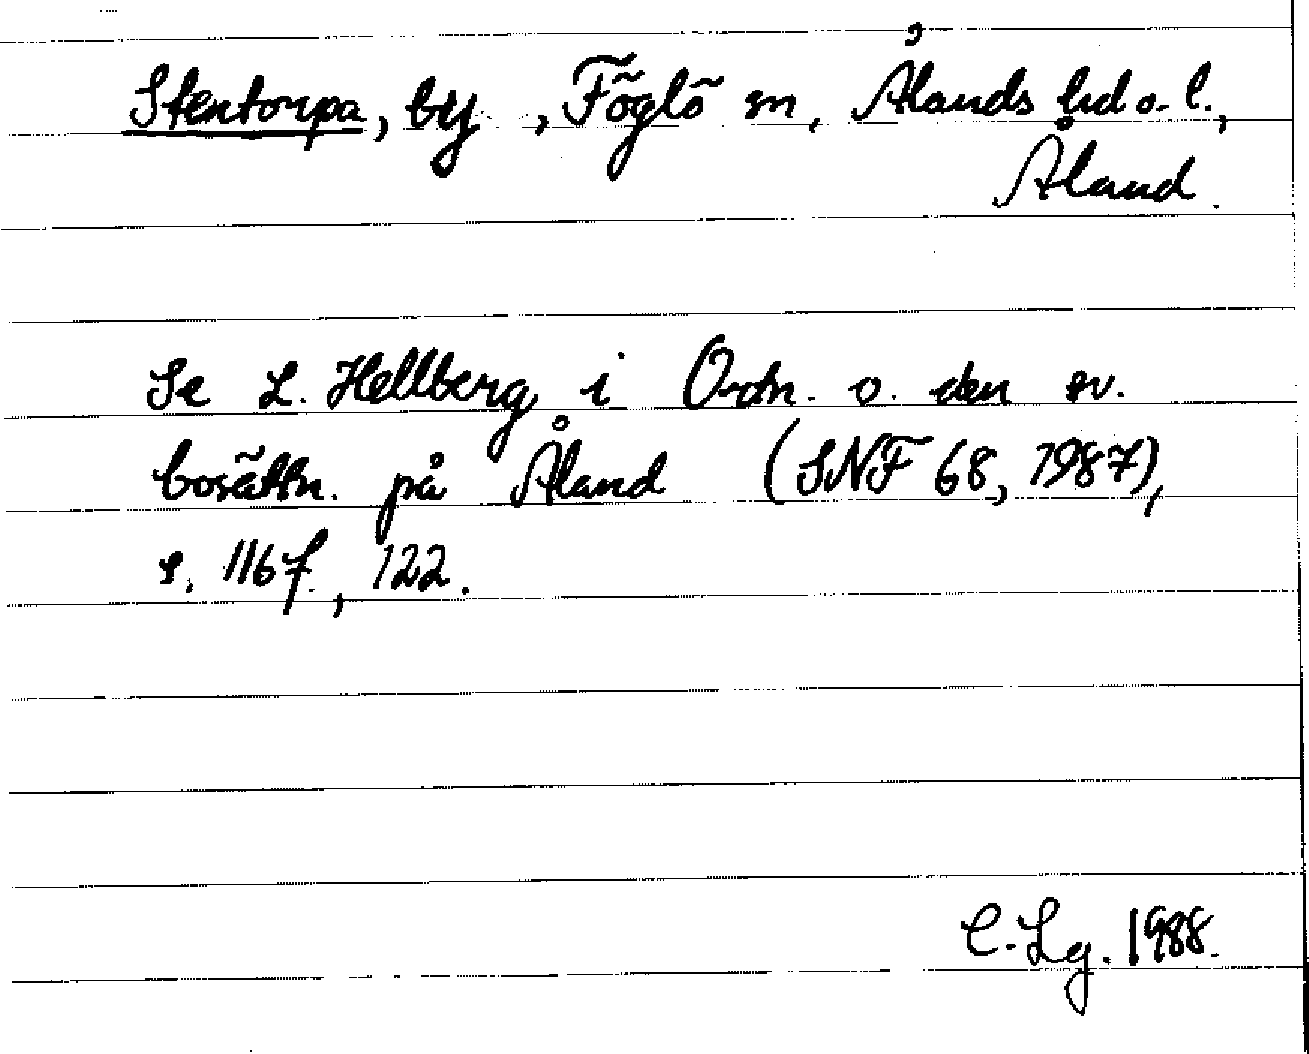 Stentorpa, by, Föglö sn, Ålands hd o. l.,
Åland.
Se L. Hellberg i Ortn. o. den sv.
bosättn. på Åland (SNF 68, 1987),
s. 116 f., 122.
C. Lg. 1988.